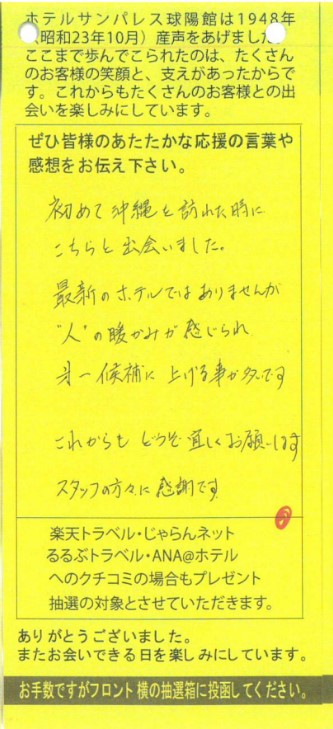 ホテルサンパレス球陽館は1948年
(昭和23年10月）産声をあげました
ここまで歩んでこられたのは、たくさん
のお客様の笑顔と、支えがあったからで
す。これからもたくさんのお客様との出
会いを楽しみにしています。
ぜひ皆様のあたたかな応援の言葉や
感想をお伝え下さい。
初めて沖縄を訪れた時に
こちらと出会いました。
最新のホテルではありませんが
"人"の暖かみが感じられ
第一候補に上げる事が多いです
これからもどうぞ宜しくお願いします
スタッフの方々に感謝です
楽天トラベル・じゃらんネット
るるぶトラベル・ANA@ホテル
へのクチコミの場合もプレゼント
抽選の対象とさせていただきます。
ありがとうございました。
またお会いできる日を楽しみにしています。
お手数ですがフロント横の抽選箱に投函してください。